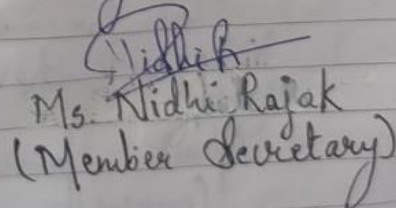 Nidhi R.
Ms. Nidhi Rajak
(Member Secretary)